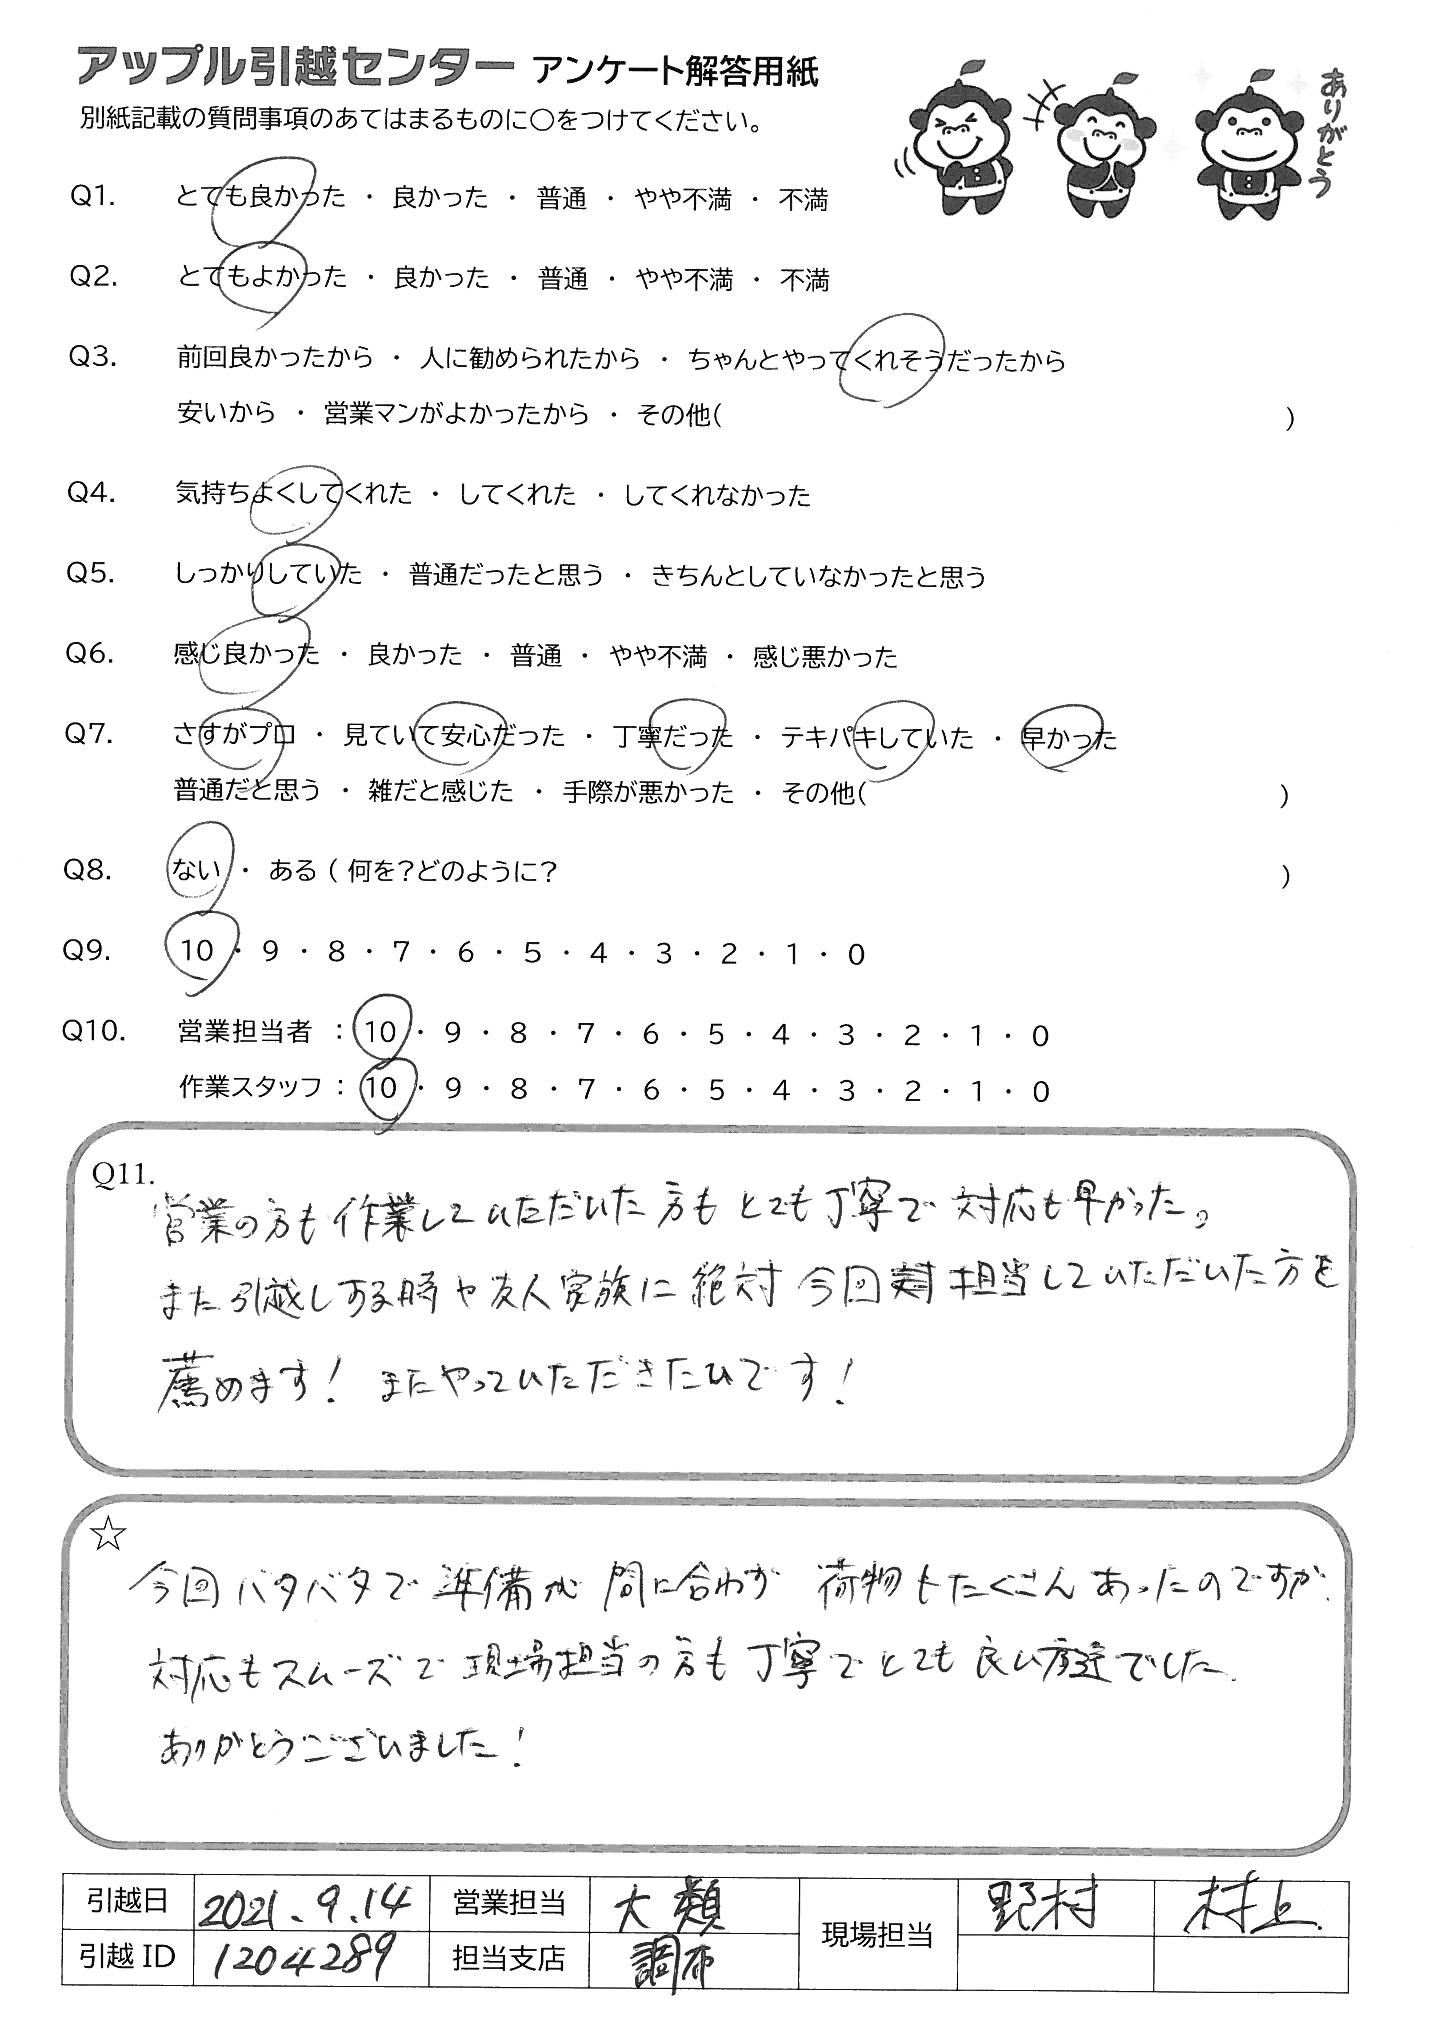 アップル引越センター アンケート解答用紙
別紙記載の質問事項のあてはまるものに○をつけてください。
ありがとう
Q1. とても良かった ・ 良かった ・ 普通 ・ やや不満 ・ 不満
Q2. とてもよかった ・ 良かった ・ 普通 ・ やや不満 ・ 不満
Q3. 前回良かったから ・ 人に勧められたから ・ ちゃんとやってくれそうだったから
安いから ・ 営業マンがよかったから ・ その他( )
Q4. 気持ちよくしてくれた ・ してくれた ・ してくれなかった
Q5. しっかりしていた ・ 普通だったと思う ・ きちんとしていなかったと思う
Q6. 感じ良かった ・ 良かった ・ 普通 ・ やや不満 ・ 感じ悪かった
Q7. さすがプロ ・ 見ていて安心だった ・ 丁寧だった ・ テキパキしていた ・ 早かった
普通だと思う ・ 雑だと感じた ・ 手際が悪かった ・ その他( )
Q8. ない ・ ある ( 何を?どのように? )
Q9. 10 ・ 9 ・ 8 ・ 7 ・ 6 ・ 5 ・ 4 ・ 3 ・ 2 ・ 1 ・ 0
Q10. 営業担当者 : 10 ・ 9 ・ 8 ・ 7 ・ 6 ・ 5 ・ 4 ・ 3 ・ 2 ・ 1 ・ 0
作業スタッフ : 10 ・ 9 ・ 8 ・ 7 ・ 6 ・ 5 ・ 4 ・ 3 ・ 2 ・ 1 ・ 0
Q11.
営業の方も作業していただいた方もとても丁寧で対応も早かった。
また引越しする時や友人家族に絶対今回担当していただいた方を
薦めます! またやっていただきたいです!
☆
今回バタバタで準備が間に合わず 荷物もたくさんあったのですが、
対応もスムーズで現場担当の方も丁寧でとても良い方達でした。
ありがとうございました!
引越日 2021.9.14 営業担当 大類 現場担当 野村 村上
引越ID 1204289 担当支店 調布